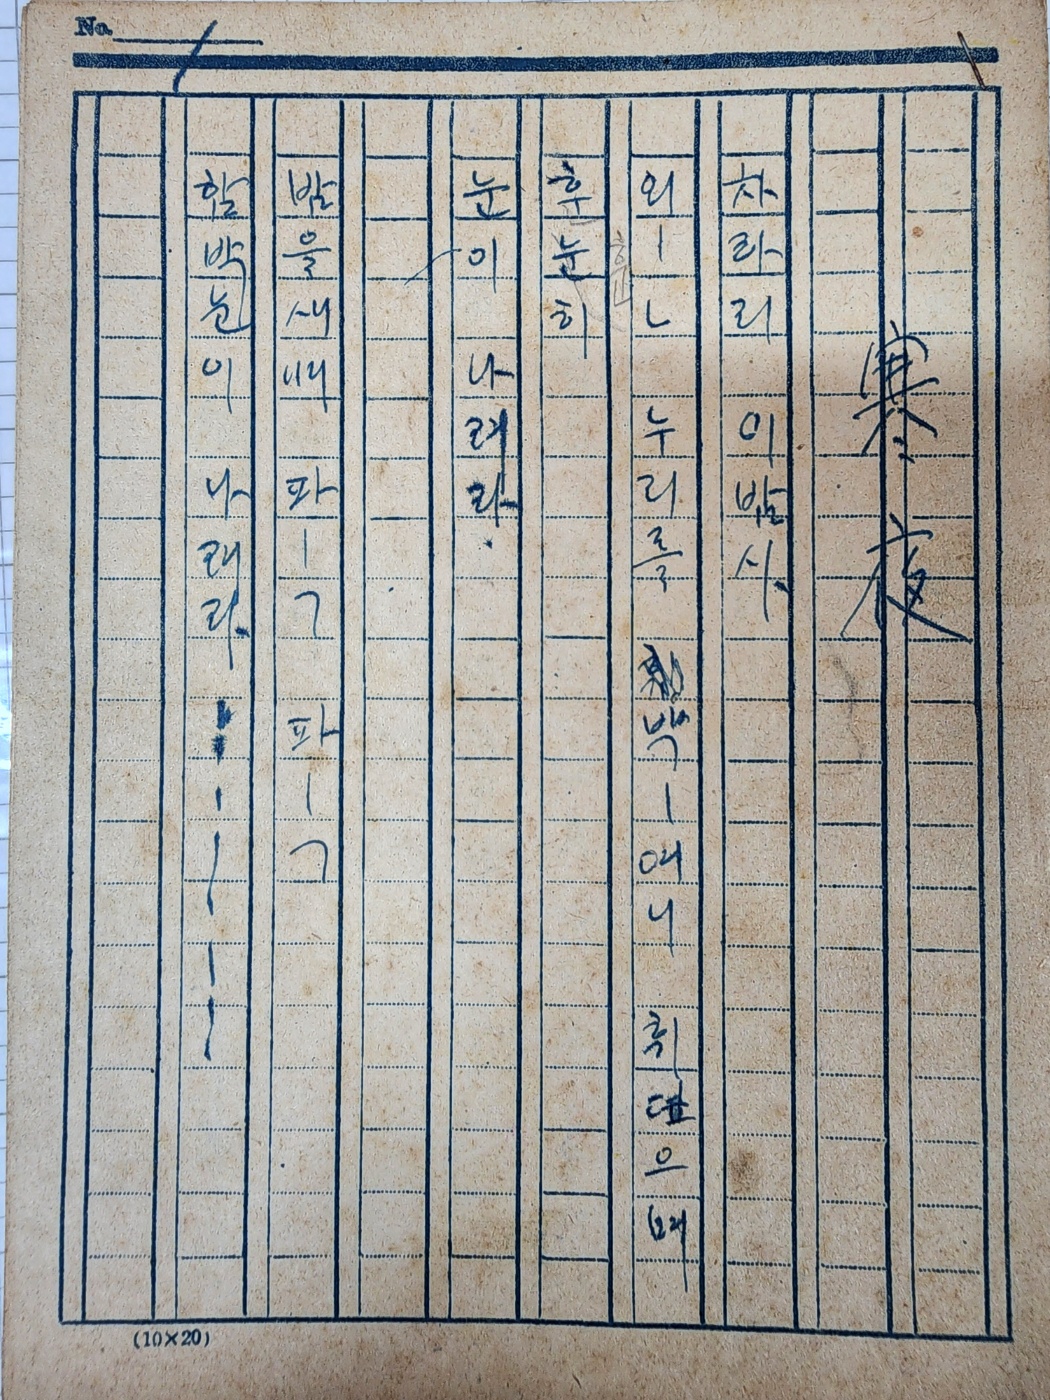 No.
寒夜
차라리 이밤사
외ㅣㄴ 누리를 백ㅣ여니 휙
후눈히
눈이 나려라.
밤을 새며 파ㅣㄱ 파ㅣㄱ
함박눈이 나래라
(10×20)